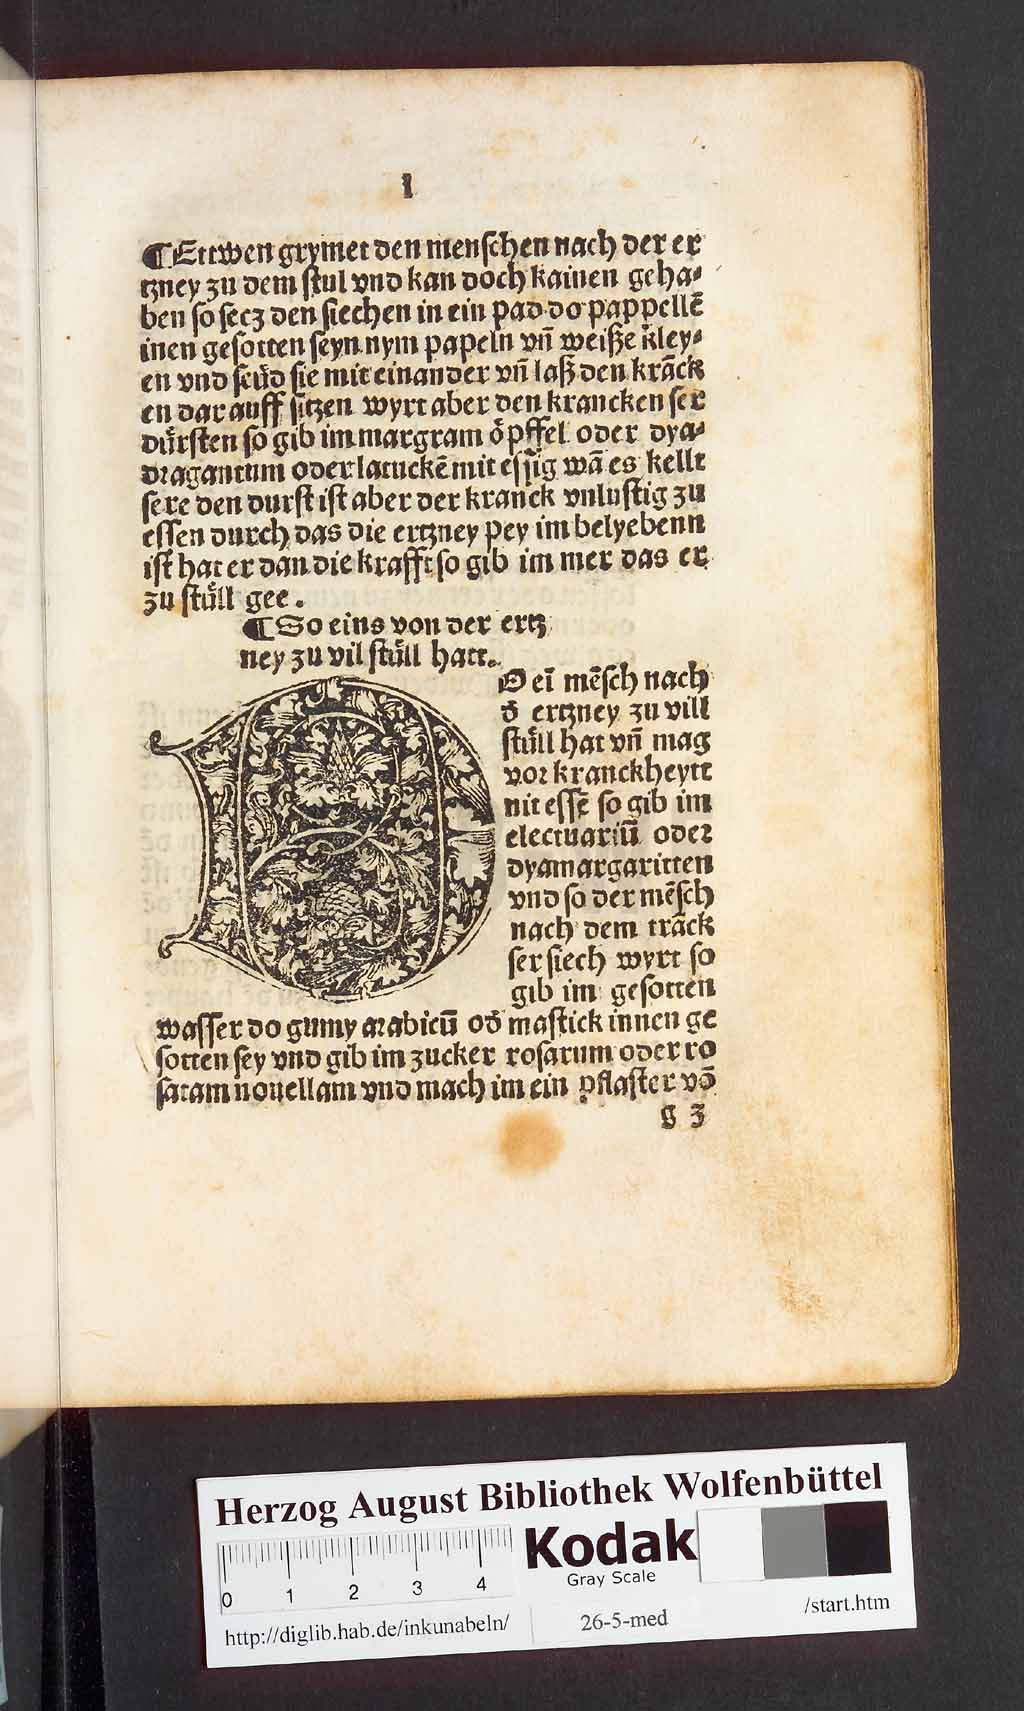 l
¶ Ettwen grymet den menschen nach der er
tzney zu dem stul vnd kan doch kainen geha⸗
ben so secz den siechen in ein pad do pappellē
inen gesotten seyn nym papeln vn̄ weiße kley⸗
en vnd seüd sie mit einander vn̄ laß den krāck
en dar auff sitzen wyrt aber den krancken ser
dürsten so gib im margram öpffel oder dya⸗
dragantum oder latuckē mit essig wā es kellt
sere den durst ist aber der kranck vnlustig zu
essen durch das die ertzney pey im belyebenn
ist hat er dan die krafft so gib im mer das er
zu stůll gee.
¶ So eins von der ertz
ney zu vil stůll hatt.
D O ei᷑n mēsch nach
d̄ ertzney zu vill
stůll hat vn̄ mag
vor kranckheytt
nit essē so gib im
electuariū oder
dyamargaritten
vnd so der mēsch
nach dem trāck
ser siech wyrt so
gib im gesotten
wasser do gumy arabicū od̄ mastick innen ge
sotten sey vnd gib im zucker rosarum oder ro
satam nouellam vnd mach im ein pflaster vō
g 3
Herzog August Bibliothek Wolfenbüttel
0 1 2 3 4
Kodak
Gray Scale
http://diglib.hab.de/inkunabeln/
26-5-med
/start.htm